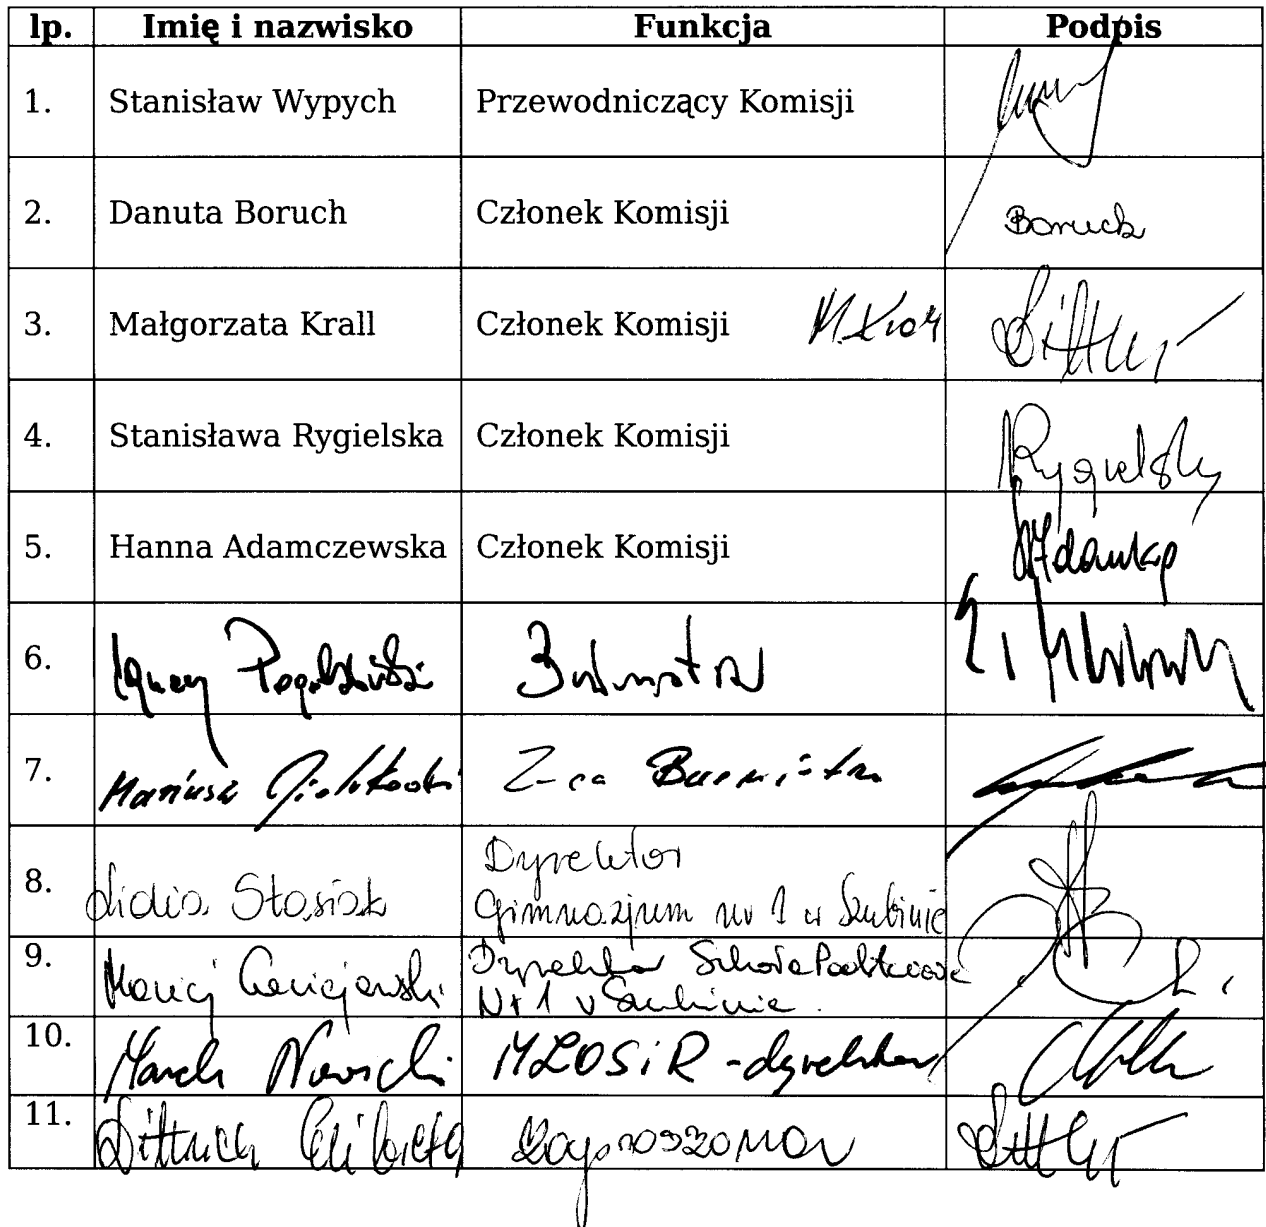 lp. Imię i nazwisko Funkcja Podpis
1. Stanisław Wypych Przewodniczący Komisji
2. Danuta Boruch Członek Komisji Boruch
3. Małgorzata Krall Członek Komisji M. Krall
4. Stanisława Rygielska Członek Komisji Rygielska
5. Hanna Adamczewska Członek Komisji
6. Ignacy Pogodziński Burmistrz
7. Mariusz Z-ca Burmistrza
8. Lidia Stasiak Dyrektor
Gimnazjum nr 1 w Szubinie
9. Maciej Dyrektor Szkoła Podstawowa
Nr 1 w Szubinie.
10. Marek Nowicki MLOSiR - dyrektor
11. Dittrich Elżbieta zaproszona